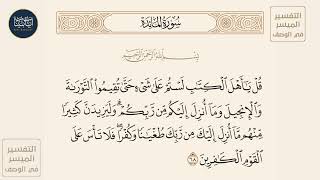 سُورَةُ المَائِدَةِ
التفسير
الميسر
في الوصف
بِسْمِ اللَّهِ الرَّحْمَٰنِ الرَّحِيمِ
قُلْ يَٰٓأَهْلَ ٱلْكِتَٰبِ لَسْتُمْ عَلَىٰ شَىْءٍ حَتَّىٰ تُقِيمُوا۟ ٱلتَّوْرَىٰةَ
وَٱلْإِنجِيلَ وَمَآ أُنزِلَ إِلَيْكُم مِّن رَّبِّكُمْ ۗ وَلَيَزِيدَنَّ كَثِيرًا
مِّنْهُم مَّآ أُنزِلَ إِلَيْكَ مِن رَّبِّكَ طُغْيَٰنًا وَكُفْرًا ۖ فَلَا تَأْسَ عَلَى
ٱلْقَوْمِ ٱلْكَٰفِرِينَ ٦٨
التفسير
الميسر
في الوصف